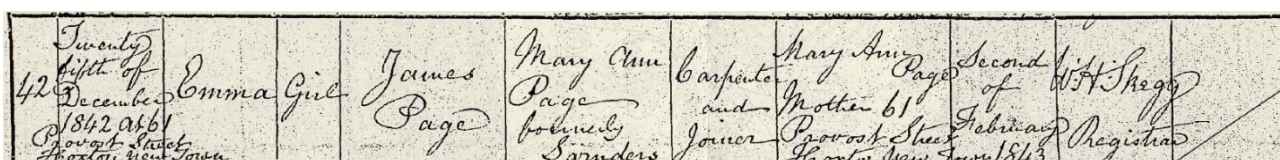 42
Twenty
fifth of
December
1842 at 61
Provost Street
Hoxton New Town
Emma
Girl
James
Page
Mary Ann
Page
formerly
Saunders
Carpenter
and
Joiner
Mary Ann
Page
Mother 61
Provost Street
Hoxton New Town
Second
of
February
1843
W.H. Skegg
Registrar